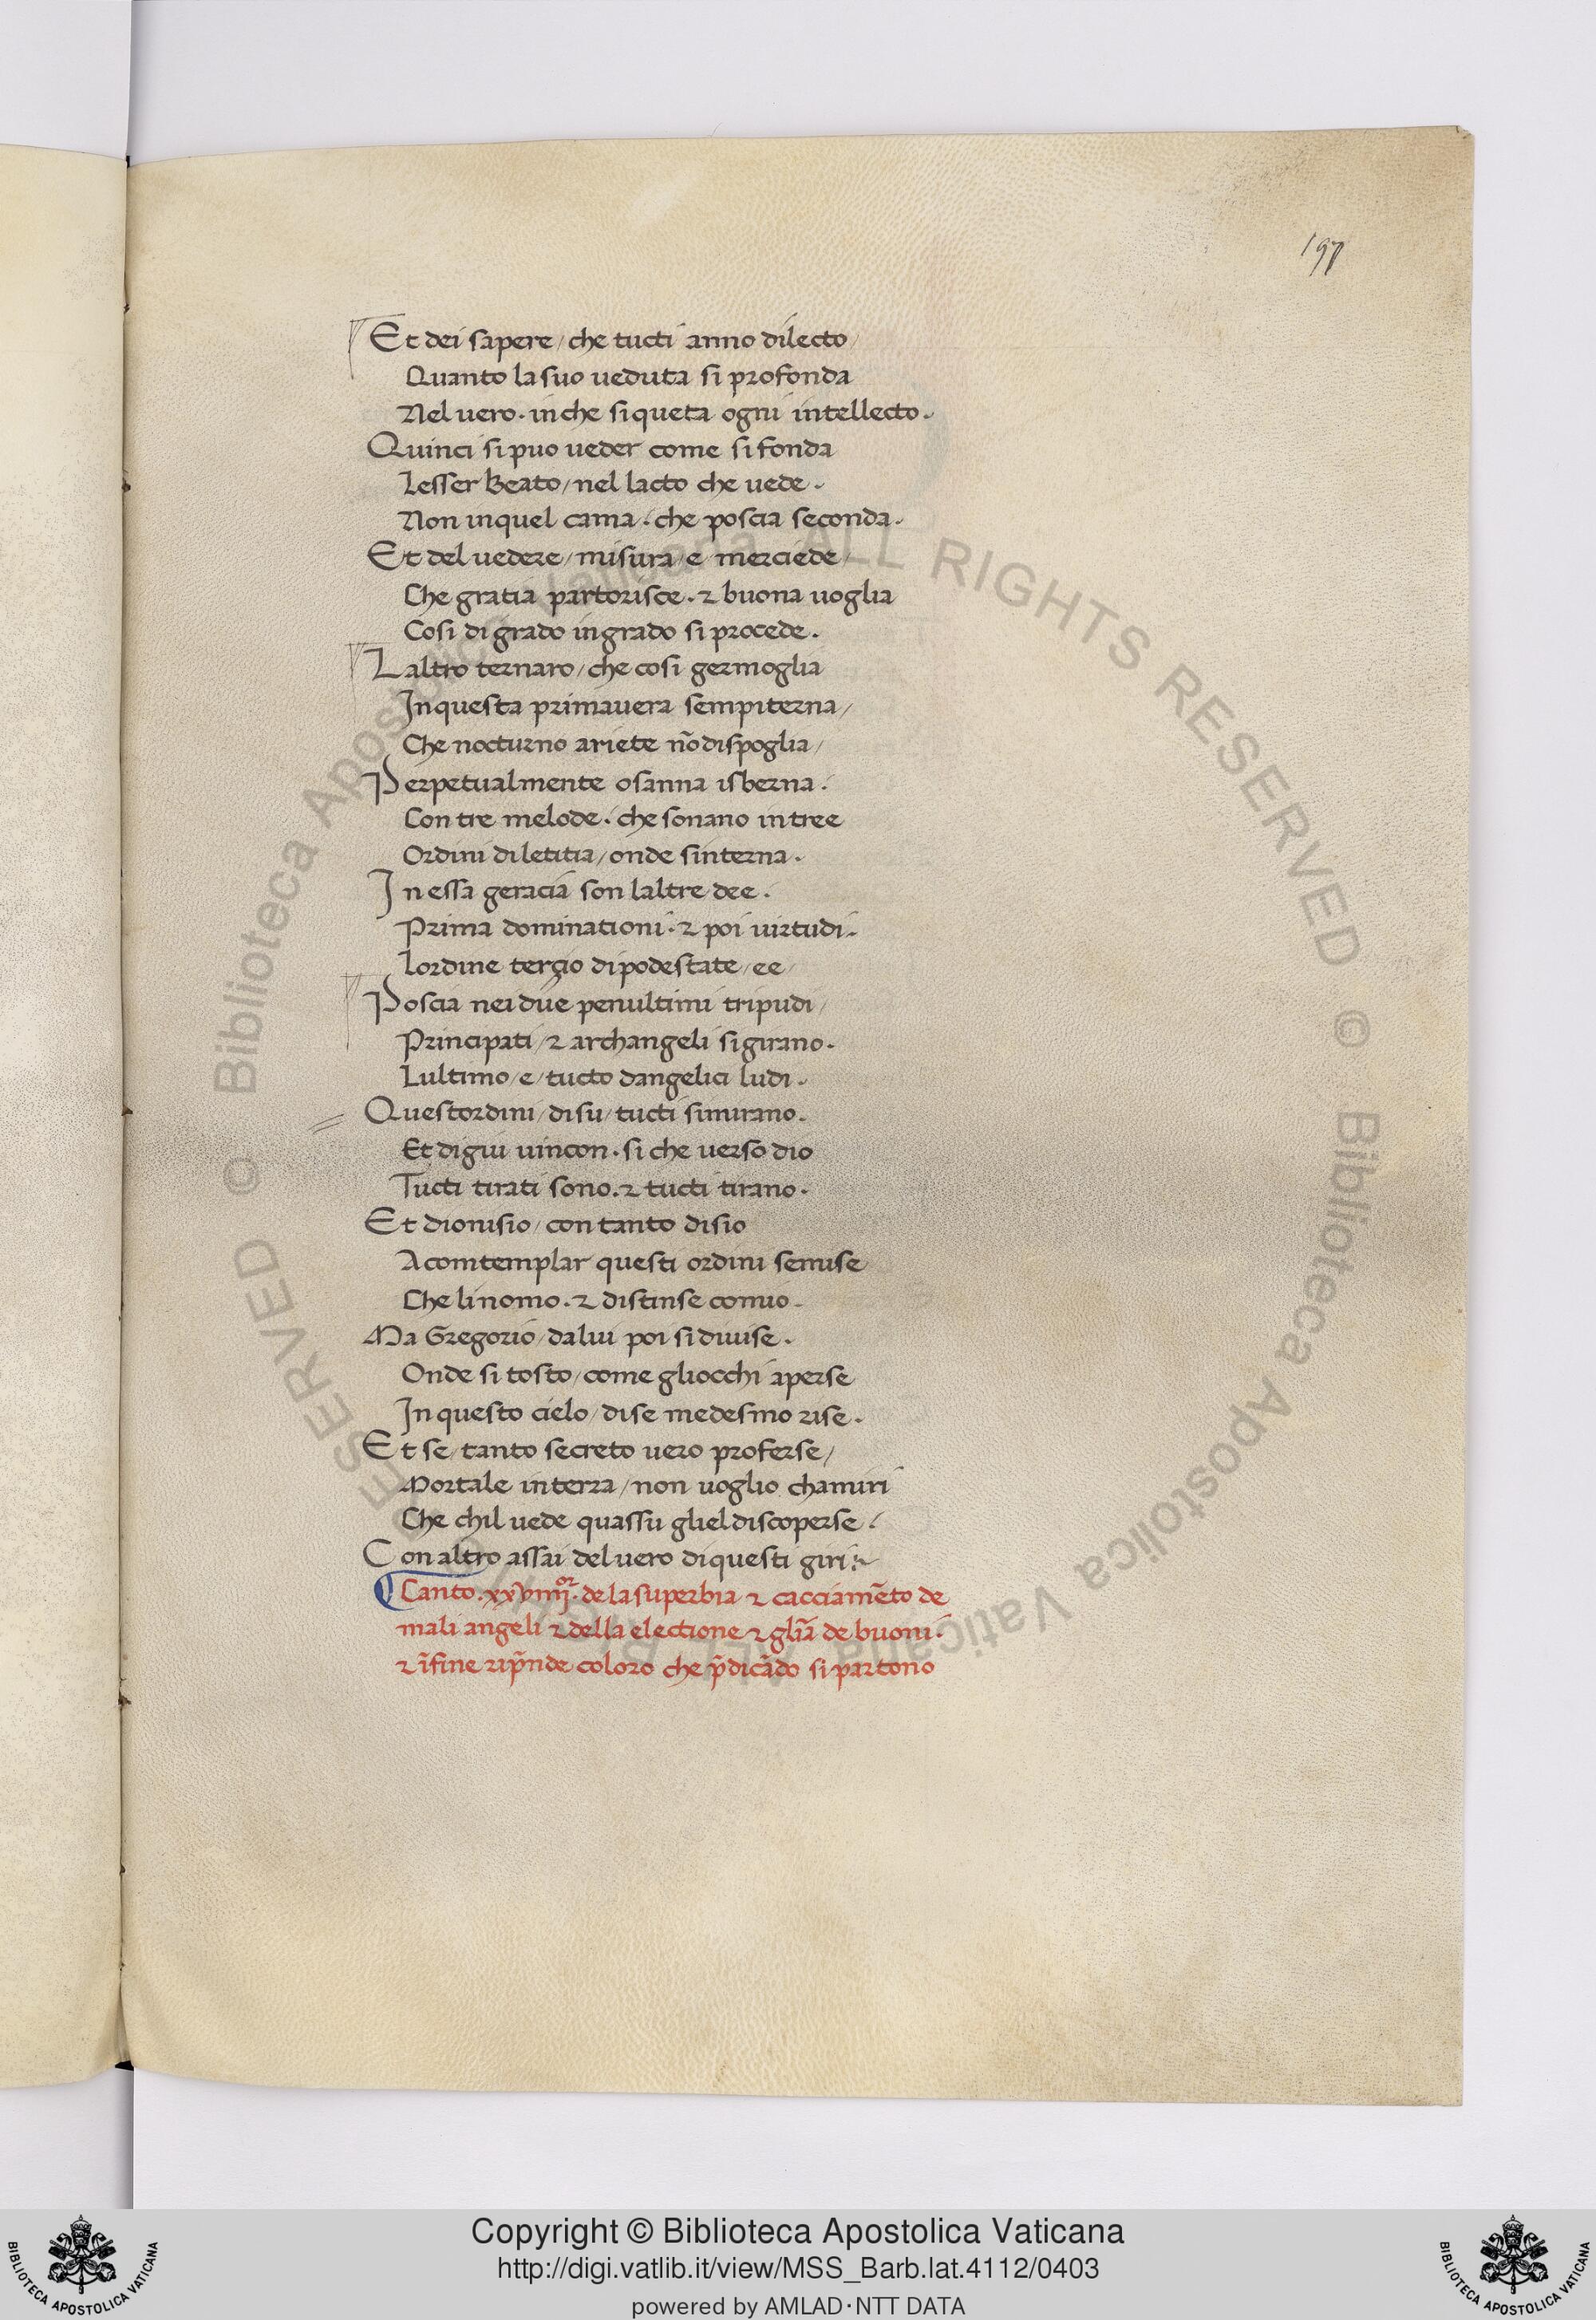 197
Et dei sapere / che tucti anno dilecto /
Quanto la suo ueduta si profonda
Nel uero . in che si queta ogni intellecto .
Quinci si puo ueder come si fonda
Lesser Beato / nel lacto che uede .
Non in quel cama . che poscia seconda .
Et del uedere / misura / e / merciede /
Che gratia partorisce . & buona uoglia
Cosi di grado in grado si procede .
Laltro ternaro / che cosi germoglia
In questa primauera sempiterna /
Che nocturno ariete nō dispoglia /
Perpetualmente osanna isberna .
Con tre melode . che sonano in tree
Ordini di letitia / onde sinterna .
In essa geracia son laltre dee .
Prima dominationi . & poi uirtudi .
Lordine tergio di podestate / ee /
Poscia nei due penultimi tripudi /
Principati / & archangeli si girano .
Lultimo / e / tucto dangelici ludi .
Questordini / di su / tucti simirano .
Et di giu uincon . si che uerso dio
Tucti tirati sono . & tucti tirano .
Et dionisio / con tanto disio
A comtemplar questi ordini semise
Che li nomo . & distinse comio .
Ma Gregorio / da lui poi si diuise .
Onde si tosto / come gliocchi aperse
In questo cielo / di se medesmo rise .
Et se / tanto secreto uero proferse /
Mortale in terra / non uoglio chamiri
Che chil uede quassu gliel discoperse .
Con altro assai del uero di questi giri
Canto . xxviiij . de la superbia & cacciamēto de
mali angeli & della electione & glīa de buoni .
& īfine rip̄nde coloro che p̄dicādo si partono
© Biblioteca Apostolica Vaticana ALL RIGHTS RESERVED © Biblioteca Apostolica Vaticana ALL RIGHTS RESERVED
Copyright © Biblioteca Apostolica Vaticana
http://digi.vatlib.it/view/MSS_Barb.lat.4112/0403
powered by AMLAD·NTT DATA
BIBLIOTECA APOSTOLICA VATICANA
BIBLIOTECA APOSTOLICA VATICANA